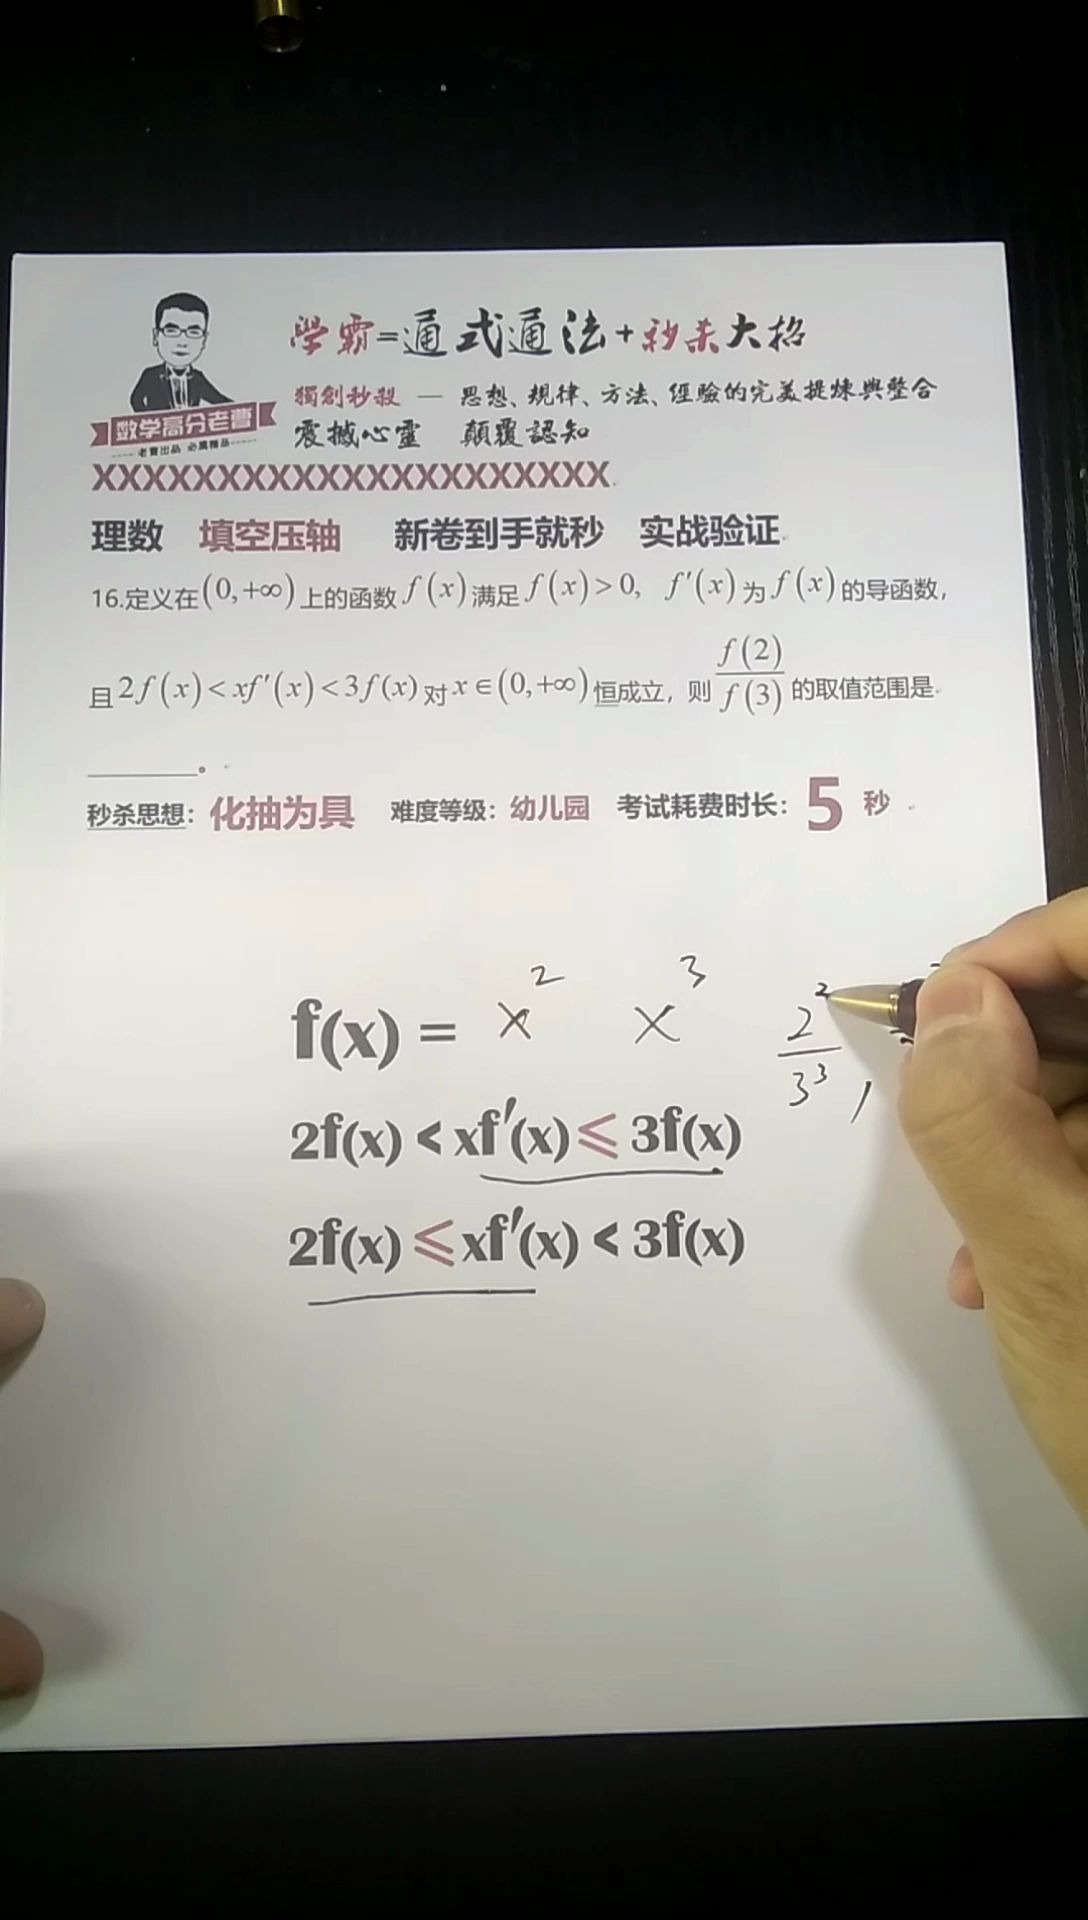 學霸=通式通法+秒杀大招
獨創秒殺 — 思想、規律、方法、經驗的完美提煉與整合
震撼心靈 顛覆認知
数学高分老曹
---- 老曹出品 必属精品 ----
XXXXXXXXXXXXXXXXXXXXX
理数 填空压轴 新卷到手就秒 实战验证
16.定义在(0,+∞)上的函数f(x)满足f(x)>0, f′(x)为f(x)的导函数，
且2f(x)<xf′(x)<3f(x)对x∈(0,+∞)恒成立，则f(2)/f(3)的取值范围是
________。
秒杀思想：化抽为具 难度等级：幼儿园 考试耗费时长：5秒
f(x) = x² x³ 2²/3³ ,
2f(x) < xf′(x) ≤ 3f(x)
2f(x) ≤ xf′(x) < 3f(x)